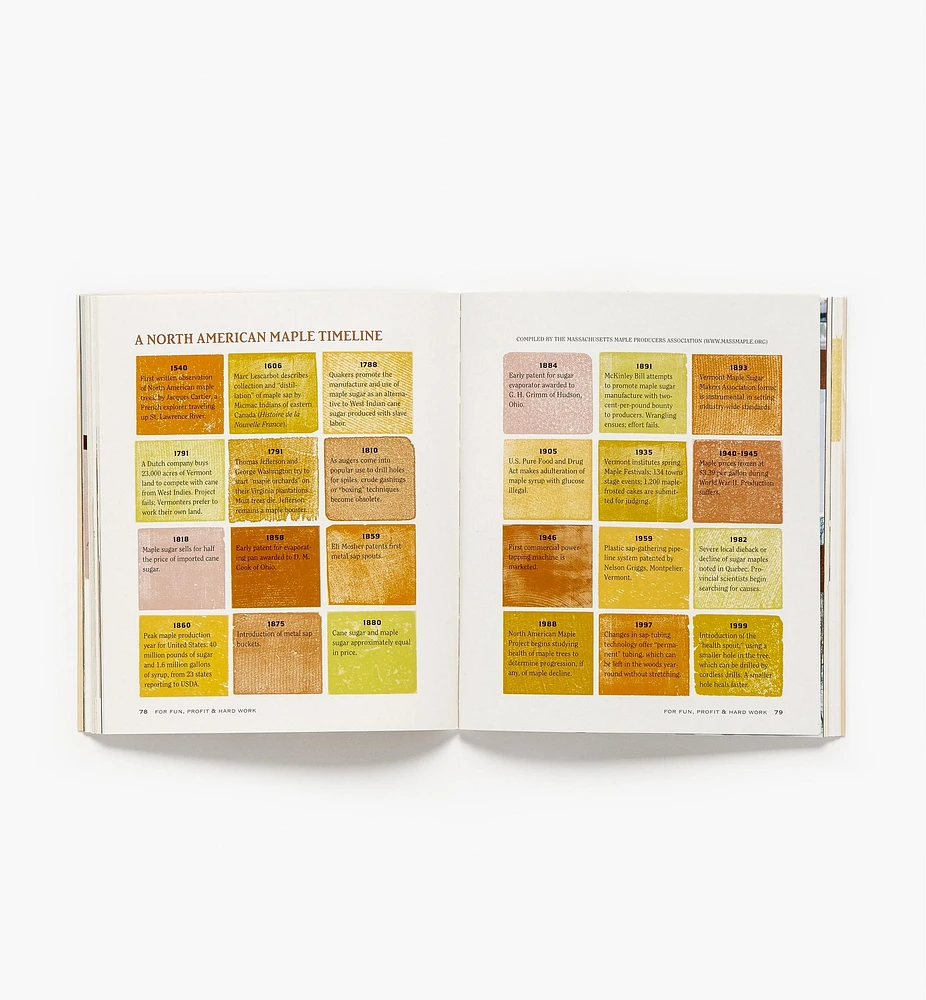 A NORTH AMERICAN MAPLE TIMELINE
1540
First written observation
of North American maple
trees, by Jacques Cartier, a
French explorer traveling
up St. Lawrence River.
1606
Marc Lescarbot describes
collection and "distil-
lation" of maple sap by
Micmac Indians of eastern
Canada (Histoire de la
Nouvelle France).
1788
Quakers promote the
manufacture and use of
maple sugar as an alterna-
tive to West Indian cane
sugar produced with slave
labor.
1791
A Dutch company buys
23,000 acres of Vermont
land to compete with cane
from West Indies. Project
fails; Vermonters prefer to
work their own land.
1791
Thomas Jefferson and
George Washington try to
start "maple orchards" on
their Virginia plantations.
Most trees die. Jefferson
remains a maple booster.
1810
As augers come into
popular use to drill holes
for spiles, crude gashings
or "boxing" techniques
become obsolete.
1818
Maple sugar sells for half
the price of imported cane
sugar.
1858
Early patent for evaporat-
ing pan awarded to D. M.
Cook of Ohio.
1859
Eli Mosher patents first
metal sap spouts.
1860
Peak maple production
year for United States: 40
million pounds of sugar
and 1.6 million gallons
of syrup, from 23 states
reporting to USDA.
1875
Introduction of metal sap
buckets.
1880
Cane sugar and maple
sugar approximately equal
in price.
78 FOR FUN, PROFIT & HARD WORK
COMPILED BY THE MASSACHUSETTS MAPLE PRODUCERS ASSOCIATION (WWW.MASSMAPLE.ORG)
1884
Early patent for sugar
evaporator awarded to
G. H. Grimm of Hudson,
Ohio.
1891
McKinley Bill attempts
to promote maple sugar
manufacture with two-
cent-per-pound bounty
to producers. Wrangling
ensues; effort fails.
1893
Vermont Maple Sugar
Makers Association forms;
is instrumental in setting
industry-wide standards.
1905
U.S. Pure Food and Drug
Act makes adulteration of
maple syrup with glucose
illegal.
1935
Vermont institutes spring
Maple Festivals; 134 towns
stage events; 1,200 maple-
frosted cakes are submit-
ted for judging.
1940-1945
Maple prices frozen at
$3.39 per gallon during
World War II. Production
suffers.
1946
First commercial power-
tapping machine is
marketed.
1959
Plastic sap-gathering pipe-
line system patented by
Nelson Griggs, Montpelier,
Vermont.
1982
Severe local dieback or
decline of sugar maples
noted in Quebec. Pro-
vincial scientists begin
searching for causes.
1988
North American Maple
Project begins studying
health of maple trees to
determine progression, if
any, of maple decline.
1997
Changes in sap-tubing
technology offer "perma-
nent" tubing, which can
be left in the woods year-
round without stretching.
1999
Introduction of the
"health spout," using a
smaller hole in the tree,
which can be drilled by
cordless drills. A smaller
hole heals faster.
FOR FUN, PROFIT & HARD WORK 79